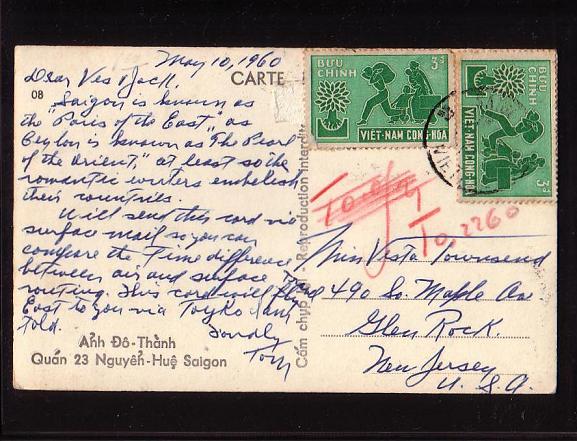 May 10, 1960
Dear Ves & Jack,
Saigon is known as
the "Paris of the East" as
Ceylon is known as "The Pearl
of the Orient," at least so the
romantic writers embelish
their countries.
Will send this card via
surface mail so you can
compare the time difference
between air and surface
routing. This card will
East to you via Toyko I am
told.
Fondly
Tom
08
CARTE
Ảnh Đô-Thành
Quán 23 Nguyễn-Huệ Saigon
Cấm chụp - Reproduction interdite
BƯU CHÍNH
3đ
VIỆT-NAM CỘNG-HÒA
BƯU CHÍNH
3đ
VIỆT-NAM CỘNG-HÒA
VIET
T0,2260
Miss Vesta Townsend
490 So. Maple Ave
Glen Rock.
New Jersey
U. S. A.